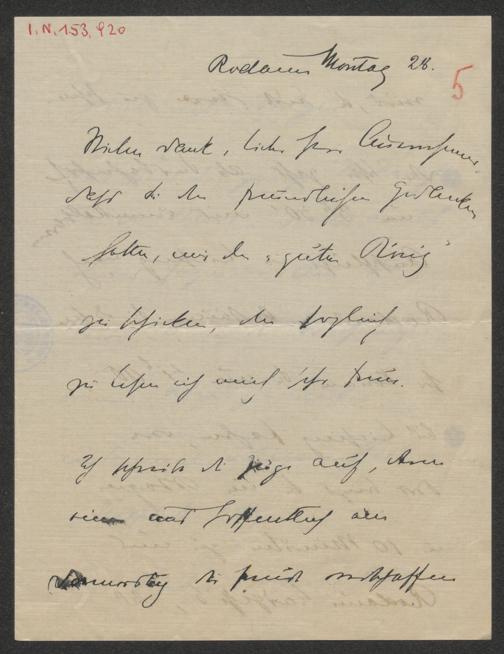 I.N. 153.920
Rodaun Montag 28.
5
Vielen Dank, lieber Herr
dass Sie den freundlichen Gedanken
hatten, mir den „guten König“
zu schicken, den sogleich
zu lesen ich mich sehr freue.
Ich schreibe die Züge auf, denn
und hoffentlich am
Donnerstag die Freude verschaffen